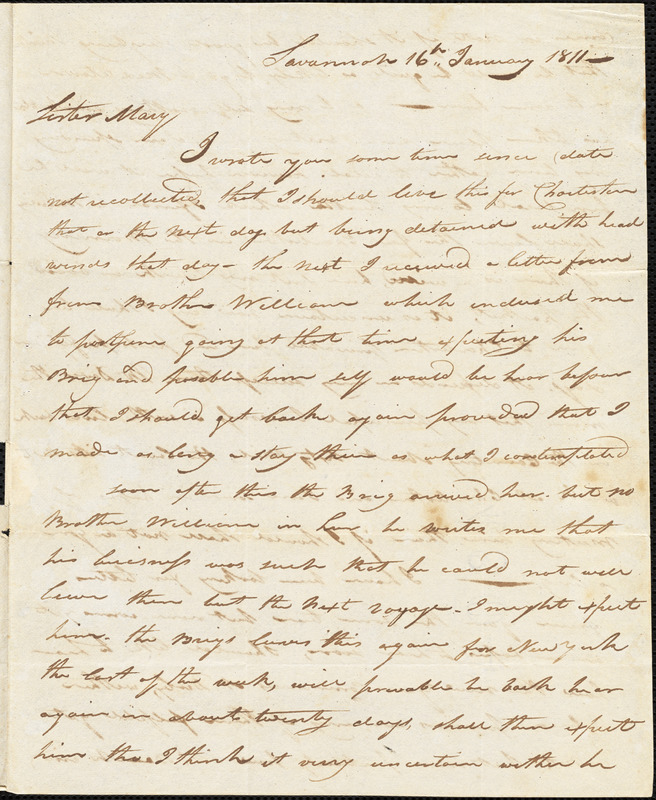 Savannah 16th January 1811—
Sister Mary
I wrote you some time sence (date
not recollected, that I should leve this for Charleston
that or the next day but being detained with head
winds that day— the next I received a letter from
from Brother William which endused me
to postpone going at that time expecting his
Brig and posable him self would be hear befour
that I should get back again provided that I
made as long a stay there as what I contemplated
soon after this the Brig arrived hear. but no
Brother William in hur he writes me that
his buisness was such that he could not well
leave then but the next voyage. I might expect
him. the Brigs leves this again for New York
the last of the week, will provable be back hear
again in about twenty days, shall then expect
him tho I think it very uncertain wether he